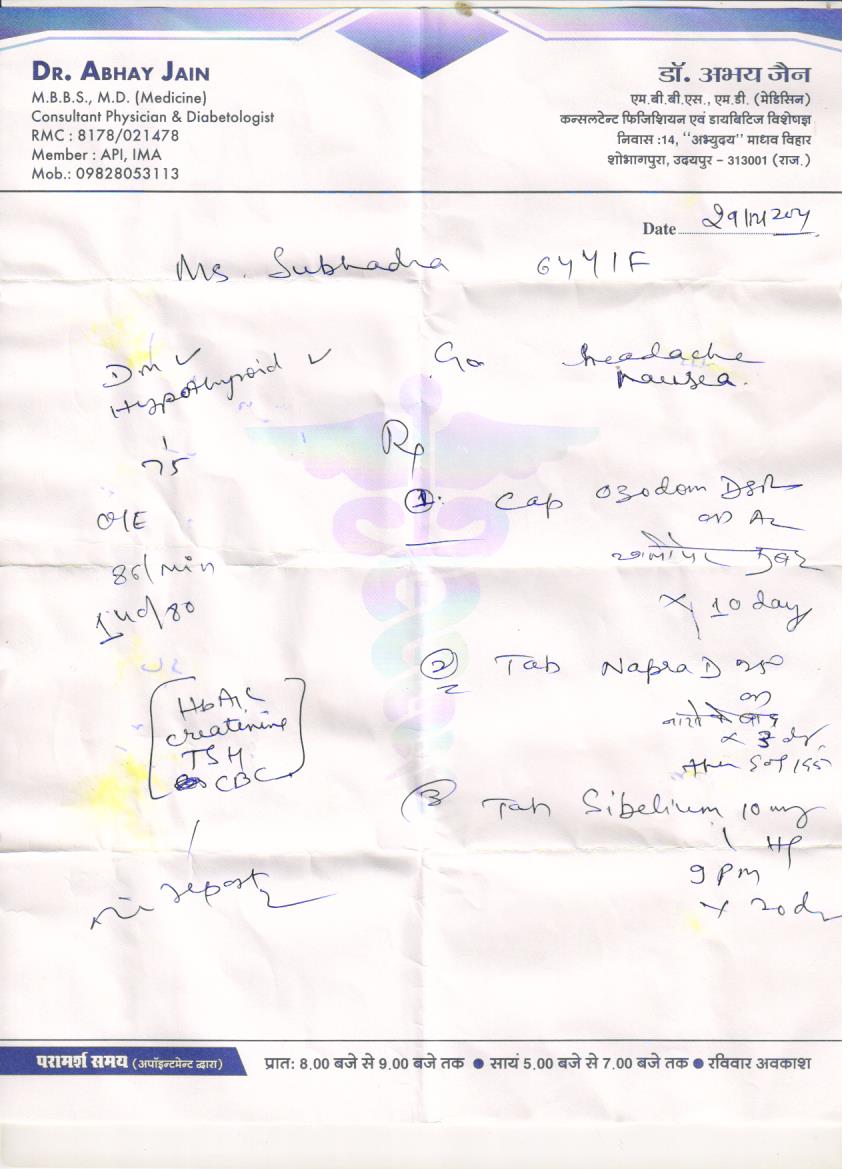 DR. ABHAY JAIN
M.B.B.S., M.D. (Medicine)
Consultant Physician & Diabetologist
RMC : 8178/021478
Member : API, IMA
Mob.: 09828053113
डॉ. अभय जैन
एम.बी.बी.एस., एम.डी. (मेडिसिन)
कन्सलटेन्ट फिजिशियन एवं डायबिटिज विशेषज्ञ
निवास :14, "अभ्युदय" माधव विहार
शोभागपुरा, उदयपुर – 313001 (राज.)
Date
Ms. Subhadra
DM ✓
Hypothyroid ✓
75
O/E
86/min
HbA1C
creatinine
TSH
CBC
report
headache
nausea.
Rp
1. Cap Ozodom DSR
x 10 day
2 Tab Napra D 250
x 3
3 Tab Sibelium 10 mg
9 pm
x 20
परामर्श समय (अपॉइन्टमेन्ट द्वारा)
प्रातः 8.00 बजे से 9.00 बजे तक ● सायं 5.00 बजे से 7.00 बजे तक ● रविवार अवकाश